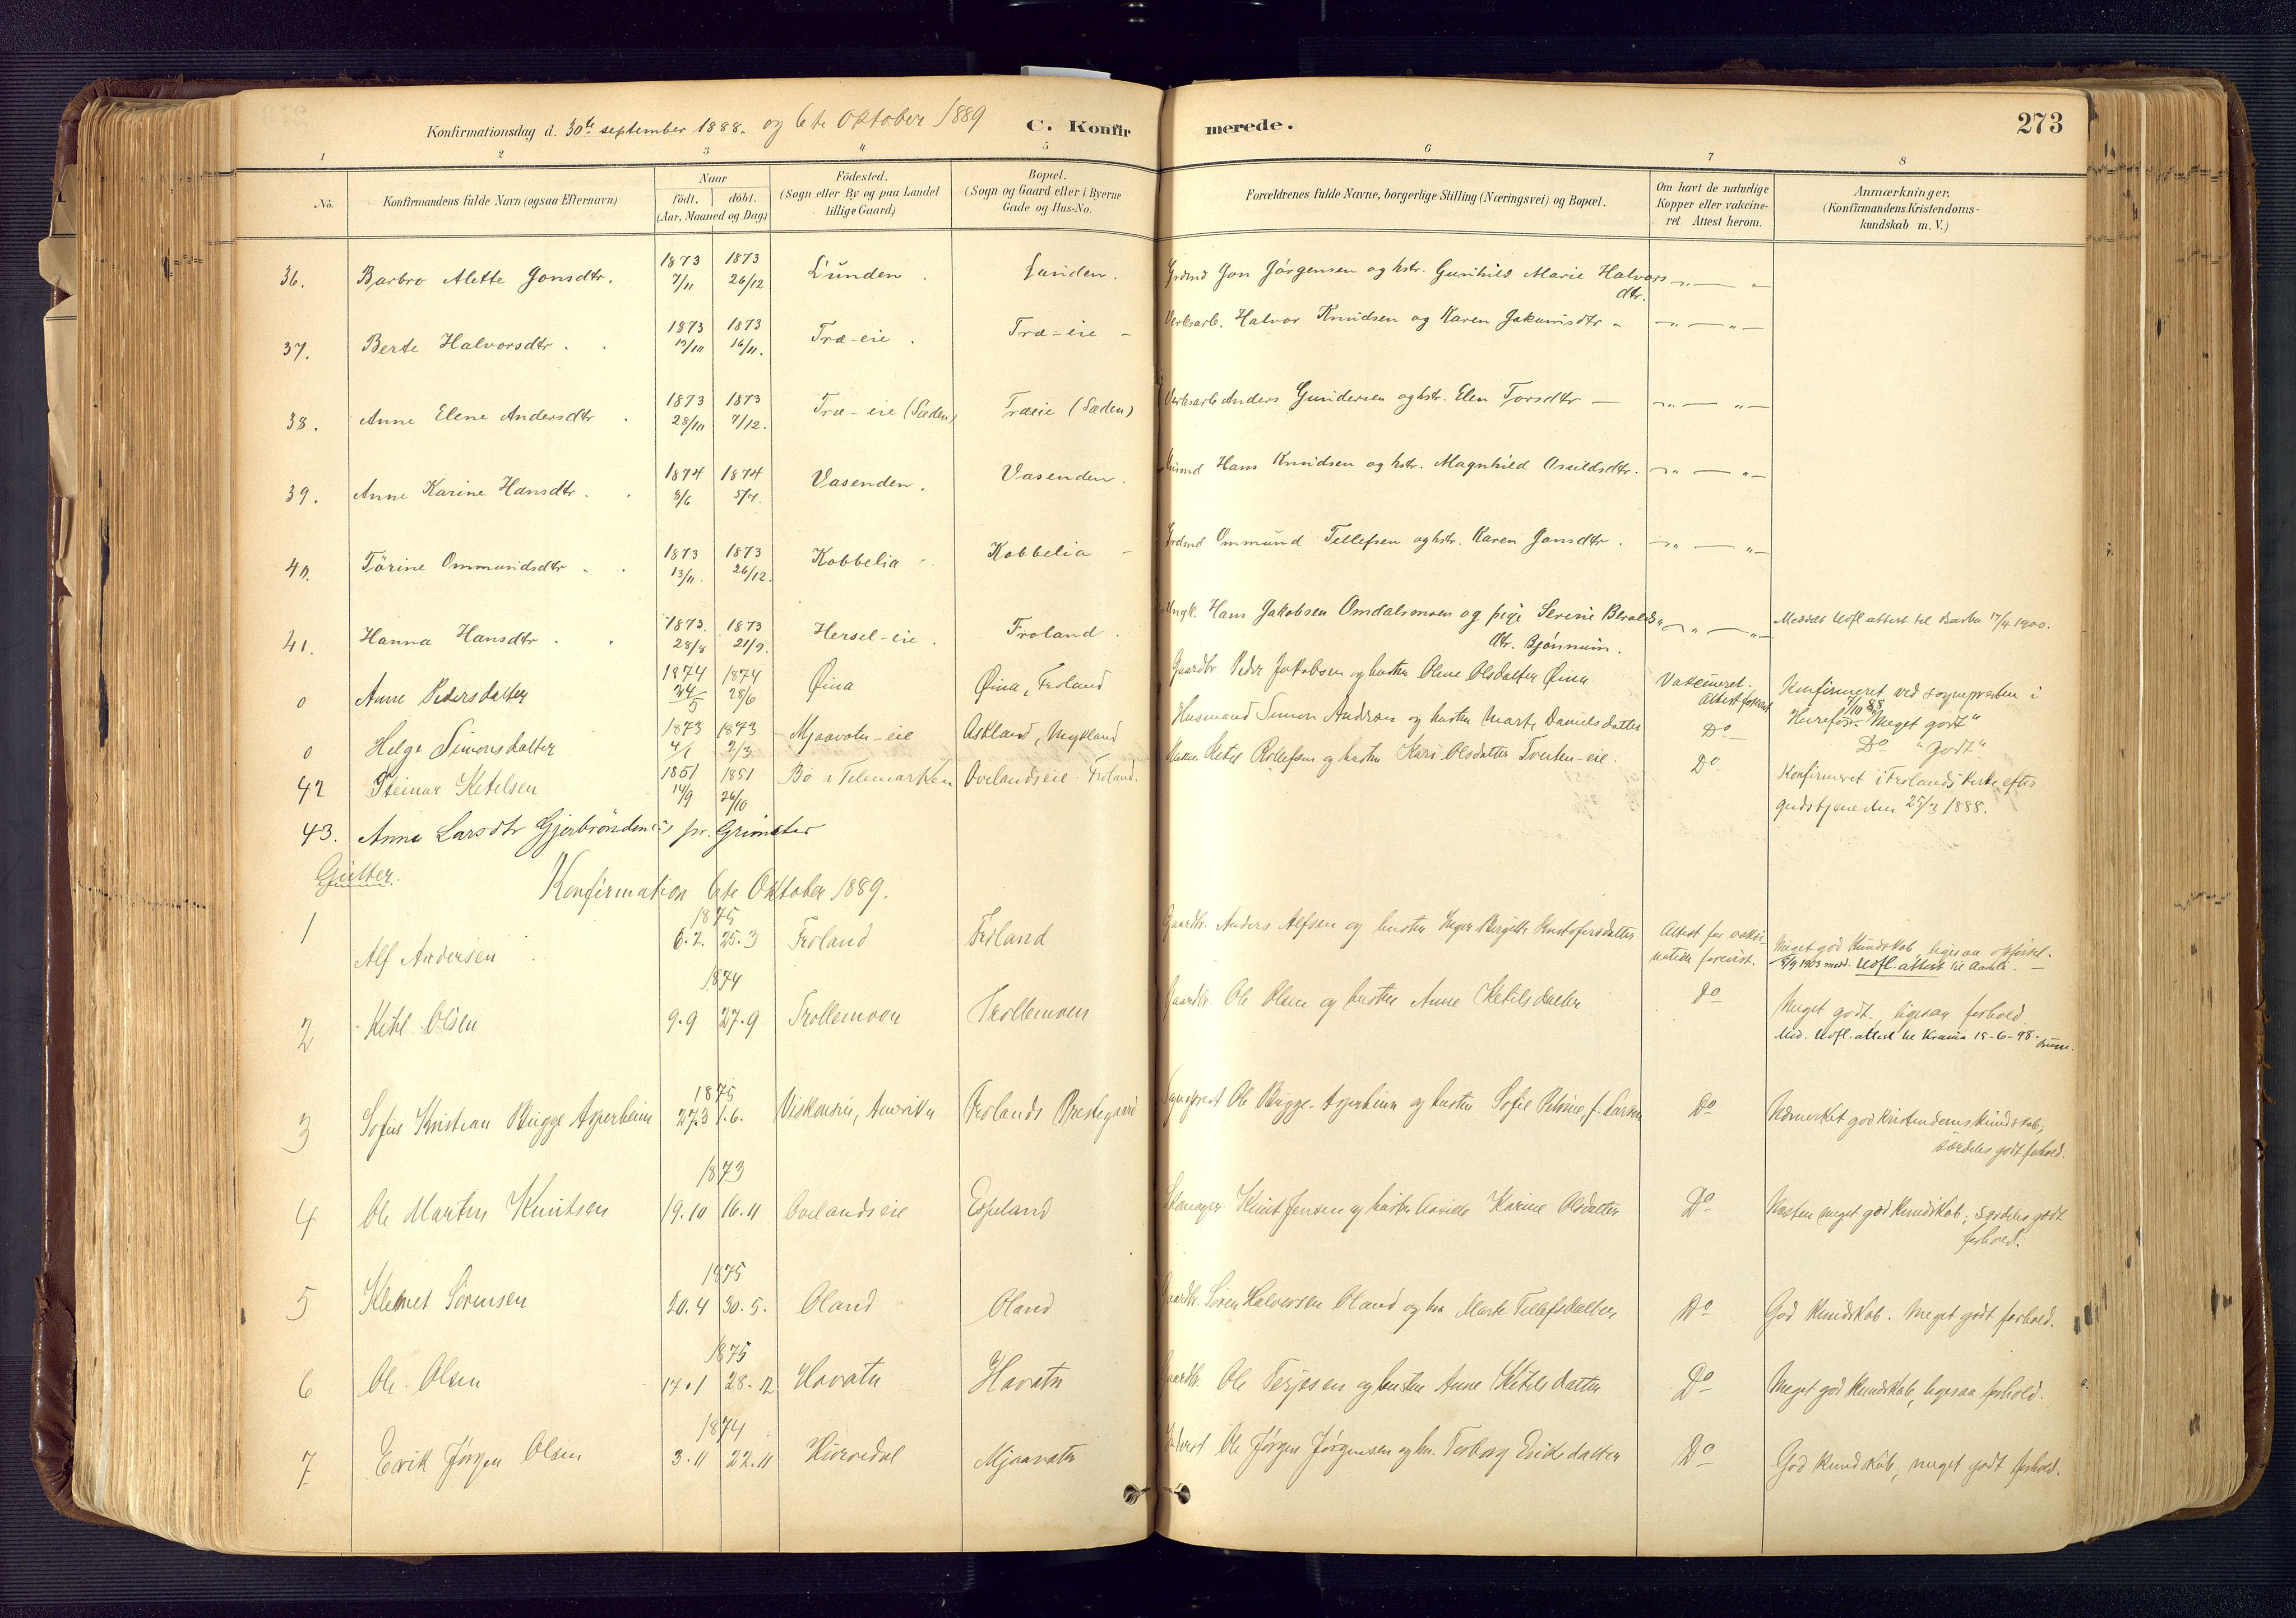 Konfirmationsdag d. 30te september 1888. og 6te Oktober 1889 C. Konfirmerede. 273
1 2 3 4 5 6 7 8
No. Konfirmandens fulde Navn (ogsaa Efternavn) Naar födt. döbt. (Aar, Maaned og Dag) Födested. (Sogn eller By og paa Landet tillige Gaard) Bopæl. (Sogn og Gaard eller i Byerne Gade og Hus-No. Forældrenes fulde Navne, borgerlige Stilling (Næringsvei) og Bopæl. Om havt de naturlige Kopper eller vakcineret Attest herom. Anmærkninger. (Konfirmandens Kristendomskundskab m. V.)
36. Barbro Alette Jonsdtr. 1873 7/11 1873 26/12 Lunden. Lunden. Jon Jörgensen og hstr. Gunhild Marie Halvorsdtr. -„- „
37. Berte Halvorsdtr. 1873 1873 16/11. Træ-eie. Træ-eie - Verksarb. Halvor Knudsen og Karen - -„- „-
38. Anne Elene Andersdtr 1873 28/10 1873 7/12. Træ-eie (Sæden) Træeie (Sæden) Verksarb Anders Gundersen og hstr. Elen Torsdtr - -„- „-
39. Anne Karine Hansdtr. 1874 8/6 1874 5/7. Vasenden. Vasenden. Hans Knudsen og hstr. Magnhild -„- „-
40. Törine Ommundsdtr 1873 13/11. 1873 26/12. Kobbelia Kobbelia - Ommund Tellefsen og hstr. Karen Jonsdtr. -„- „-
41. Hanna Hansdtr. 1873. 28/8 1873 21/9. Hersel-eie. Froland. Ungk. Hans Jakobsen Omdalsmoen og pige Serine dtr. -„- „- Meddelt Udfl attest til Barbu 17/4 1900.
0 Anne Pedersdatter 1874 24/5 1874 28/6 Øina Øina, Froland Gaardbr Peder Jakobsen og hustru Olene Olsdatter Øina Vakcineret. Attest forevist Konfirmeret ved sognepresten i Herefos 7/10 88 "Meget godt"
0 Helge Simonsdatter 1873 4/1 1873 2/3 Mjaavatn-eie Askland, Mykland Husmand Simon Andersen og hustru Marte Danielsdatter Do Do "Godt"
42 Steinar Ketelsen 1851 14/9 1851 26/10 Bø i Telemarken Ovelandseie Froland. Ketel Rollefsen og hustru Kari Olsdatter Do Konfirmeret i Frolands kirke efter
gudstjenesten 25/3 1888.
43. Anna Larsdtr pr. Grimstad
Gutter. Konfirmation 6te Oktober 1889.
1 Alf Andersen 1875 6.2. 25.3 Froland Froland Gaardbr. Anders Alfsen og hustru Inger Birgitte Attest for vakcination forevist. Meget god Kundskab, ligesaa opførsel.
5/9 1903 medd. Udfl. attest til Aamli. -
2 Ketil Olsen 1874 9.9 27.9 Trollemoen Trollemoen Gaardbr Ole Olsen og hustru Anne Ketilsdatter Do Meget godt, ligesaa forhold
Med. Udfl. attest til Krania 15-6-98.
3 Sofus Kristian Brügge Asperheim 1875 27.3 1.6. Viskonsin, Amerika Frolands Prestegaard Sogneprest Ole Brügge Asperheim og hustru Sofie Petrine, f. Larsen Do Udmerket god Kristendomskundskab;
særdeles godt forhold.
4 Ole Martin Knutsen 1873 19.10 16.11 Ovelandseie Espeland Skomager Knut Jensen og hustru Karine Olsdatter Do Næsten meget god Kundskab; særdeles godt
forhold.
5 Klemet Sörensen 1875 20.4 30.5. Oland Oland Gaardbr. Sören Halvorsen Oland og hu Marte Tellefsdatter Do God Kundskab. Meget godt forhold.
6 Ole Olsen 1875 17.1 28.12 Havatn Havatn Gaardbr. Ole Terjesen og hustru Anne Ketilsdatter Do Meget god Kundskab, ligesaa forhold.
7 Erik Jørgen Olsen 1874 3.11 22.11 Mjaavatn Ole Jørgen Jørgensen og hu. Torborg Eriksdatter Do God Kundskab, meget godt forhold.